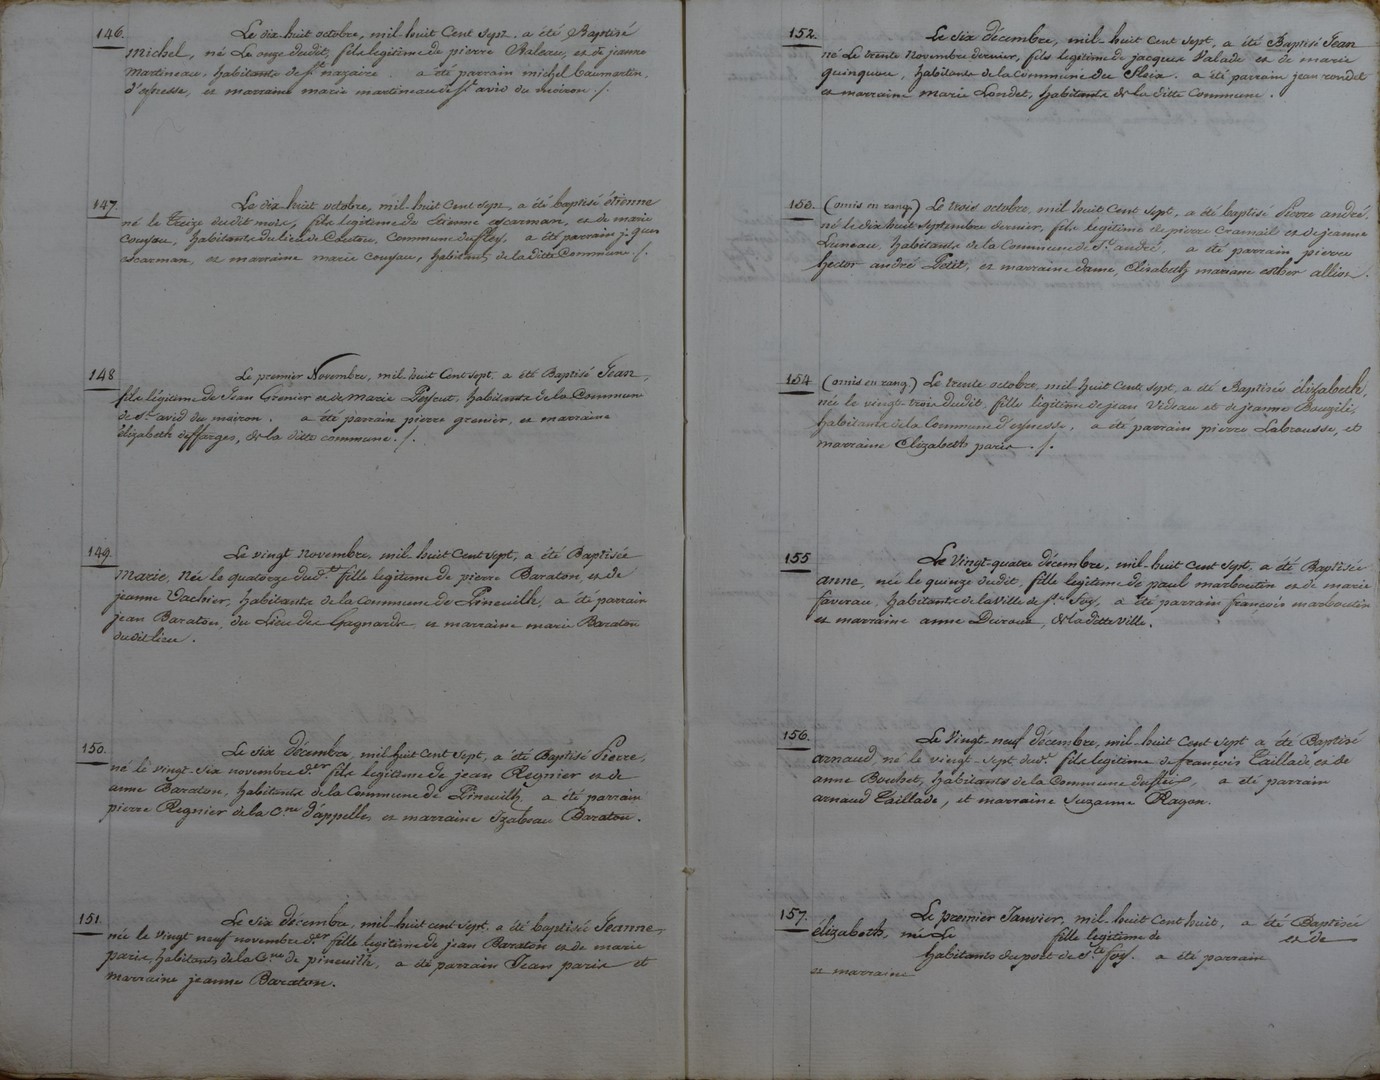 146.
Le dix huit octobre, mil huit Cent Sept. a été Baptisé
Michel, né Le onze dudit, fils legitime de pierre Baleau, et de jeanne
Martineau, habitants de St. nazaire. a été parrain michel Caumartin,
d'eynesse, et marraine marie martineau de St. avid du moiron ./.
147
Le dix huit octobre, mil huit Cent Sept, a été baptisé étienne
né le treize dudit mois, fils legitime de Etienne escarman, et de marie
Cousseau, habitants du lieu de Couteau, Commune du fley, a été parrain
escarman, et marraine marie Cousseau, habitants de la ditte Commune ./.
148
Le premier Novembre, mil huit Cent Sept. a été Baptisé Jean,
fils légitime de Jean Grenier et de Marie Peyrut, habitants de la Commune
de St. avid du moiron. a été parrain pierre grenier, et marraine
élizabeth deffarges, de la ditte commune ./.
149.
Le vingt novembre, mil huit Cent Sept, a été Baptisée
Marie, Née le quatorze dud.t fille legitime de pierre Baraton, et de
jeanne Vachier, habitants de la commune de Pineuilh, a été parrain
jean Baraton, du Lieu des Gagnards, et marraine marie Baraton
dudit lieu.
150.
Le Six décembre, mil huit Cent Sept, a été Baptisé Pierre,
né le vingt-Six novembre d.er fils legitime de jean Regnier et de
anne Baraton, habitants de la Commune de Pineuilh, a été parrain
pierre Regnier de la C.ne d'appelles, et marraine Izabeau Baraton.
151.
Le Six décembre, mil huit cent Sept. a été baptisée Jeanne,
née le vingt neuf novembre d.er fille legitime de jean Baraton et de marie
paris, habitants de la C.ne de pineuilh, a été parrain Jean paris et
marraine jeanne Baraton.
152.
Le Six décembre, mil huit Cent Sept, a été Baptisé Jean
né Le trente Novembre dernier, fils legitime de jacques Valade et de marie
quinqueau, habitants de la Commune du fleix. a été parrain jean rondet
et marraine marie Londet, habitants de la ditte Commune.
(omis en rang.) Le trois octobre, mil huit Cent Sept, a été baptisé Pierre andré,
né le dix huit Septembre dernier, fils legitime de pierre Cramail et de jeanne
Luneau, habitants de la Commune de St. andré a été parrain pierre
hector andré Petit, et marraine dame, Elizabeth mariane esther allien.
154
(omis en rang.) Le trente octobre, mil huit Cent Sept, a été Baptisée élizabeth,
née le vingt-trois dudit, fille légitime de jean Videau et de jeanne Bouzili,
habitants de la Commune d'eynesse, a été parrain pierre Labrousse, et
marraine Elizabeth paris ./.
155
Le Vingt-quatre décembre, mil huit Cent Sept, a été Baptisée
anne, née le quinze dudit, fille legitime de paul marboutin et de marie
faverau, habitants de la Ville de Ste. foy, a été parrain françois marboutin
et marraine anne Duroux, de la ditte Ville.
156.
Le Vingt-neuf décembre, mil huit Cent Sept a été Baptisé
arnaud, né le vingt-Sept dud.t fils legitime de françois Taillade, et de
anne Bouchet, habitants de la Commune du fleix, a été parrain
arnaud Taillade, et marraine Suzanne Ragon.
157.
Le premier Janvier, mil huit Cent huit, a été Baptisée
élizabeth, née Le fille legitime de et de
habitants du port de Ste foy. a été parrain
et marraine